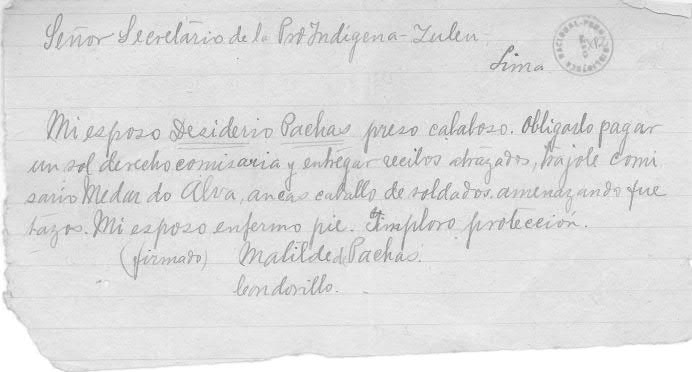 Señor Secretario de la Pro Indigena - Zulen
Lima
Mi esposo Desiderio Pachas preso calaboso. Obligado pagar
un sol derecho comisaria y entregar recibos atrazados, trájole comi
sario Medardo Alva, ancas caballo de soldados amenazando fue
tazos. Mi esposo enfermo pie. Imploro protección.
(firmado) Matilde de Pachas.
Condorillo.